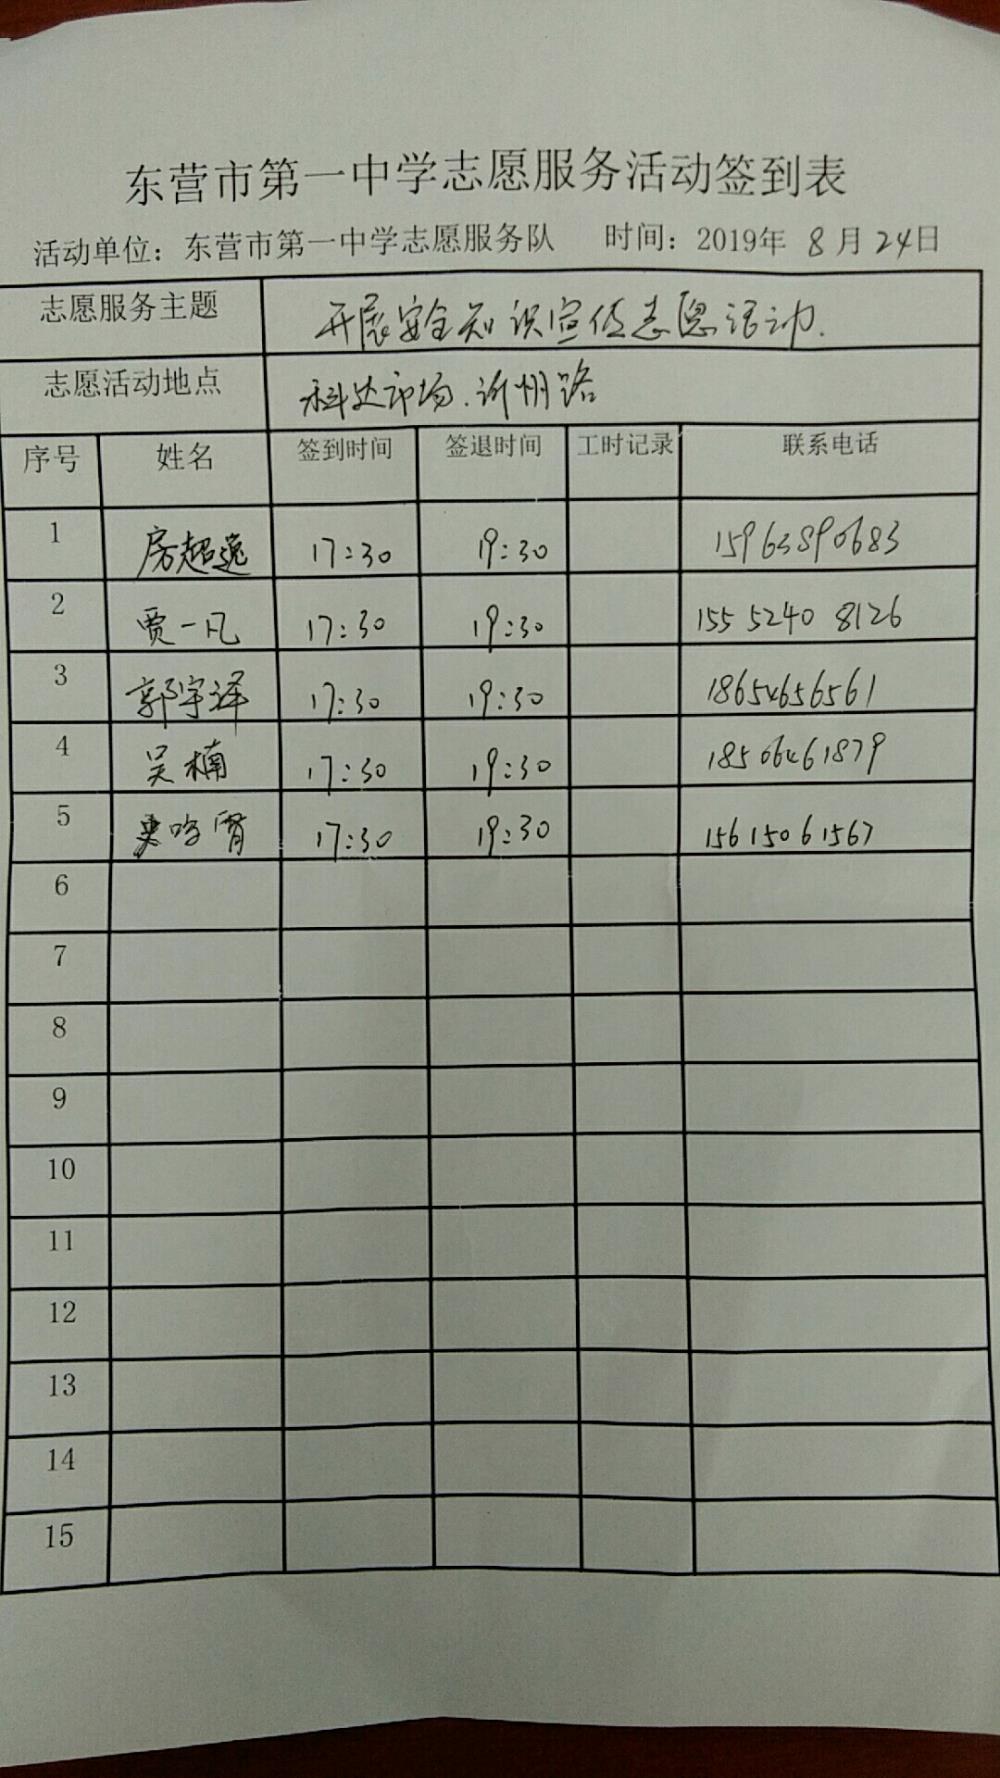 东营市第一中学志愿服务活动签到表
活动单位：东营市第一中学志愿服务队 时间：2019年 8月24日
志愿服务主题 开展安全知识宣传志愿活动.
志愿活动地点 科达市场.沂州路
序号 姓名 签到时间 签退时间 工时记录 联系电话
1 房超逸 17:30 19:30 15963890683
2 贾一凡 17:30 19:30 155 5240 8126
3 郭宇泽 17:30 19:30 18654656561
4 吴楠 17:30 19:30 18506461879
5 17:30 19:30 15615061567
6
7
8
9
10
11
12
13
14
15